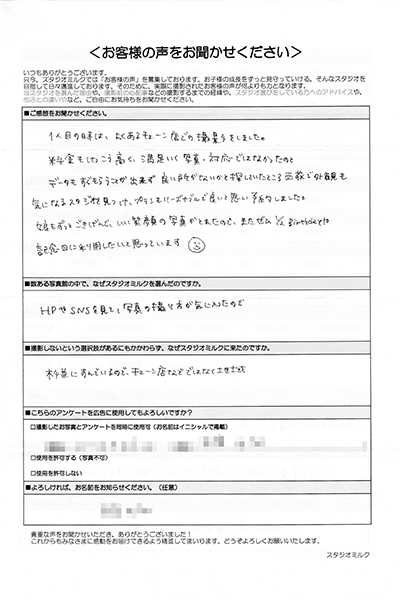 ＜お客様の声をお聞かせください＞
いつもありがとうございます。
只今、スタジオミルクでは「お客様の声」を募集しております。お子様の成長をずっと見守っていける、そんなスタジオを
目指して日々邁進しております。そのために、実際に撮影されたお客様の声が何よりも力となります。
当スタジオを選んだ理由や、撮影前の心配事などの撮影するまでの経緯や、スタジオ選びをしている方へのアドバイスや、
他店との違いやなど、ご自由にお気持ちをお聞かせください。
■ご感想をお聞かせください。
1人目の時は、よくあるチェーン店での撮影をしました。
料金もけっこう高く、満足いく写真・対応ではなかったのと
データもすぐもらうことが出来ず良い所がないかと探していたところ西荻で外観も
気になるスタジオを見つけ、プランもリーズナブルで良いと思い予約しました。
娘もずっとごきげんで、いい笑顔の写真がとれたので、またぜひ 1/2 Birthdayや
記念日に利用したいと思っています
■数ある写真館の中で、なぜスタジオミルクを選んだのですか。
HPやSNSを見て、写真の撮り方が気に入ったので
■撮影しないという選択肢があるにもかかわらず、なぜスタジオミルクに来たのですか。
杉並にすんでいるので、チェーン店などではなく
■こちらのアンケートを広告に使用してもよろしいですか？
□撮影したお写真とアンケートを同時に使用可（お名前はイニシャルで掲載）
□使用を許可する（写真不可）
□使用を許可しない
■よろしければ、お名前をお知らせください。（任意）
貴重な声をお聞かせいただき、ありがとうございました！
これからもみなさまに感動をお届けできるよう精進してまいります。どうぞよろしくお願いいたします。
スタジオミルク